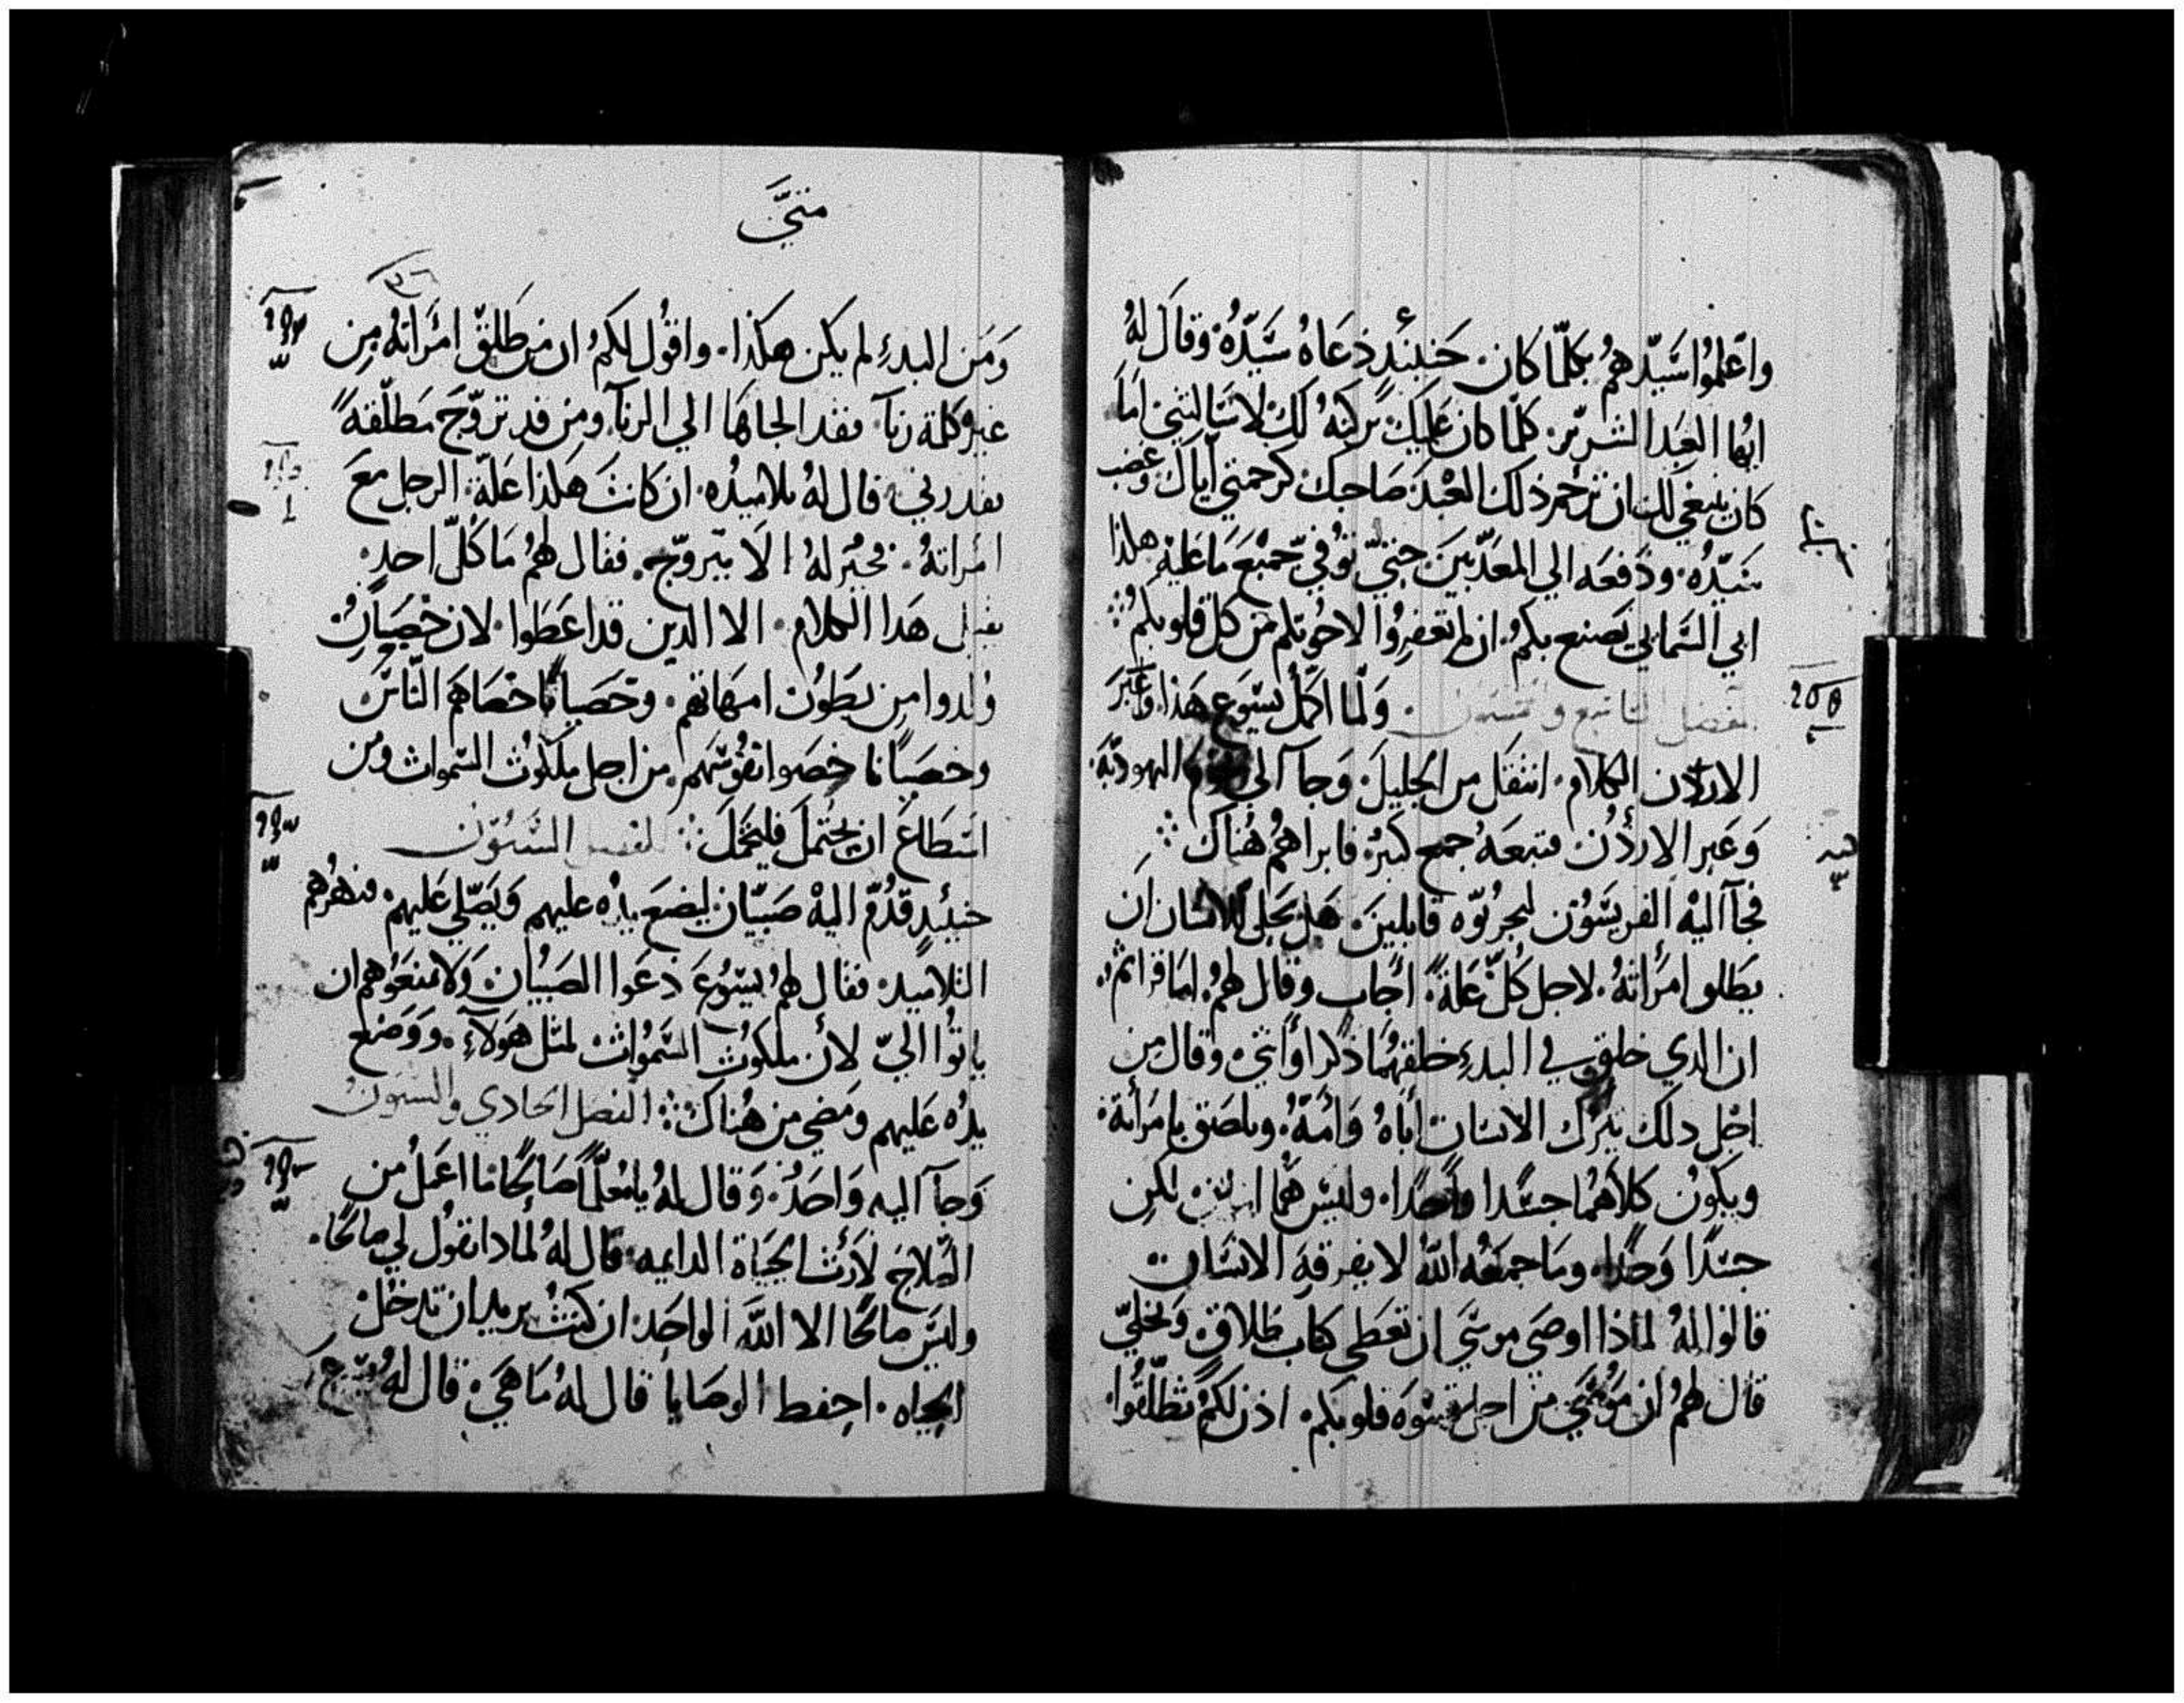 واعلموا سيّدهم بكلّما كان. حينيئذٍ دعاهُ سيّدُه وقال لهُ
ايها العبد الشرير. كلّما كان عليك تركته لك لانك سالتني اما
كان ينبغي لك ان ترحم ذلك العبد صاحبك كرحمتي اياك وغضب
سيّدُه. ودفعه الي المعذّبين حتيّ يُوفيّ جميع ما عليه هكذا
ابي السّمايي يصنع بكم. ان لم تغفروا لاخوتكم من كل قلوبكم
الفصل التاسع والخمسون. ولما اكمل يسوع هذا وعبر
الاردن الكلام. انتقل من الجليل وجآ الي تخوم اليهوديّة.
وعبر الاردُن فتبعهُ جمع كبيرُ فابراهم هُناك
فجآ اليه الفريسّون ليجرّبوه قايلين. هل يحل للانسان ان
يطلو امرأتهُ. لاجل كُلّ علةً. أجاب وقال لهمُ. اما قراتم
ان الدي خلق في البدءِ خلقهُما ذكرا وأنثي. وقال من
اجل دلك يترك الانسان أباهُ وامّهُ. ويلصق بامرأتة
ويكونُ كلاهُما جسدا واحدًا. وليس هُما اثنين لكن
جسدًا وحدًا. وما جمعهُ اللّه لا يفرقه الانسان
قالوا لهُ لماذا اوصي موسي ان تعطي كتاب طلاق. وتخليّ
قال لهم ان موسي من اجل قسوة قلوبكم. اذن لكم تطلّقوا.
متيّ
ومن البدءِ لم يكن هكذا. واقول لكم ان من طلّق امرأته من
غير كلمة زنآ فقد الجاها الي الزنآ. ومن قد تزوّج مطلّقةً
فقد زني. قال لهُ تلاميدُه. ان كانت هكذا علّة الرجل مع
امرأتهُ. فخير لهُ الا يتزوّج. فقال لهمُ ما كُلّ احد
يقبل هدا الكلام. الا الدين قد اعطوا. لان خصيان
ولدوا من بطون امهاتهم. وخصيانًا خصاهم النّاس
وخصيانًا خصوا نفوسهم. من اجل ملكوت السموات ومن
استطاع ان يحتمل فليحتمل. الفصل الستون
حينيئدٍ قدّم اليه صبيّان ليضع يدُه عليهم ويصلّي عليهم. فنهرهم
التلاميد فقال لهم يسوع دعوا الصبيان ولا تمنعوهم ان
ياتوا اليّ لأن ملكوت السموات لمثل هولآءِ. ووضع
يدُه عليهم ومضي من هُناك. الفصل الحادي والستون
وجآ اليه واحدُ. وقال لهُ يا معلّمًا صالحًا ما اعمل من
الصّلاح لأرث الحياة الدايمه. قال لهُ لمادا تقول لي صالحًا.
وليس صالحًا الا اللّه الواحد. ان كنت تريد ان تدخل
الحياه. احفط الوصايا قال لهُ ما هي. قال لهُ